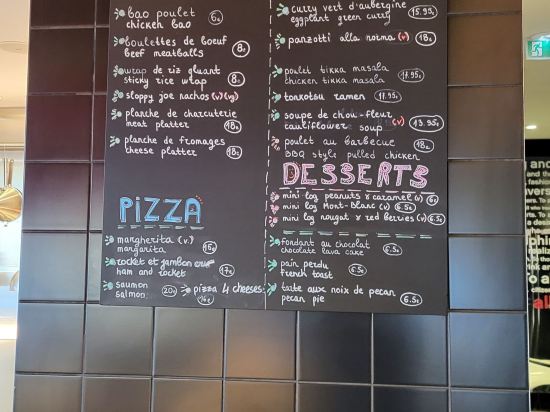 bao poulet
chicken bao 6€
boulettes de boeuf
beef meatballs 8€
wrap de riz gluant
sticky rice wrap 8€
sloppy joe nachos (v) (vg)
planche de charcuterie
meat platter 18€
planche de fromages
cheese platter 18€
PIZZA
margherita (v)
margarita 15€
rocket et jambon cru
ham and rocket 17€
saumon
salmon 20€
pizza 4 cheeses
curry vert d'aubergine
eggplant green curry 15.95€
panzotti alla norma (v) 18€
poulet tikka masala
chicken tikka masala 17.95€
tonkotsu ramen 17.95€
soupe de chou-fleur
cauliflower soup (v) 13.95€
poulet au barbecue
BBQ style pulled chicken 18€
DESSERTS
mini log peanuts x caramel (v) 6€
mini log Mont-Blanc (v) 6.5€
mini log nougat x red berries (v) 6.5€
fondant au chocolat
chocolate lava cake 6.5€
pain perdu
french toast 6.5€
tarte aux noix de pecan
pecan pie 6.5€